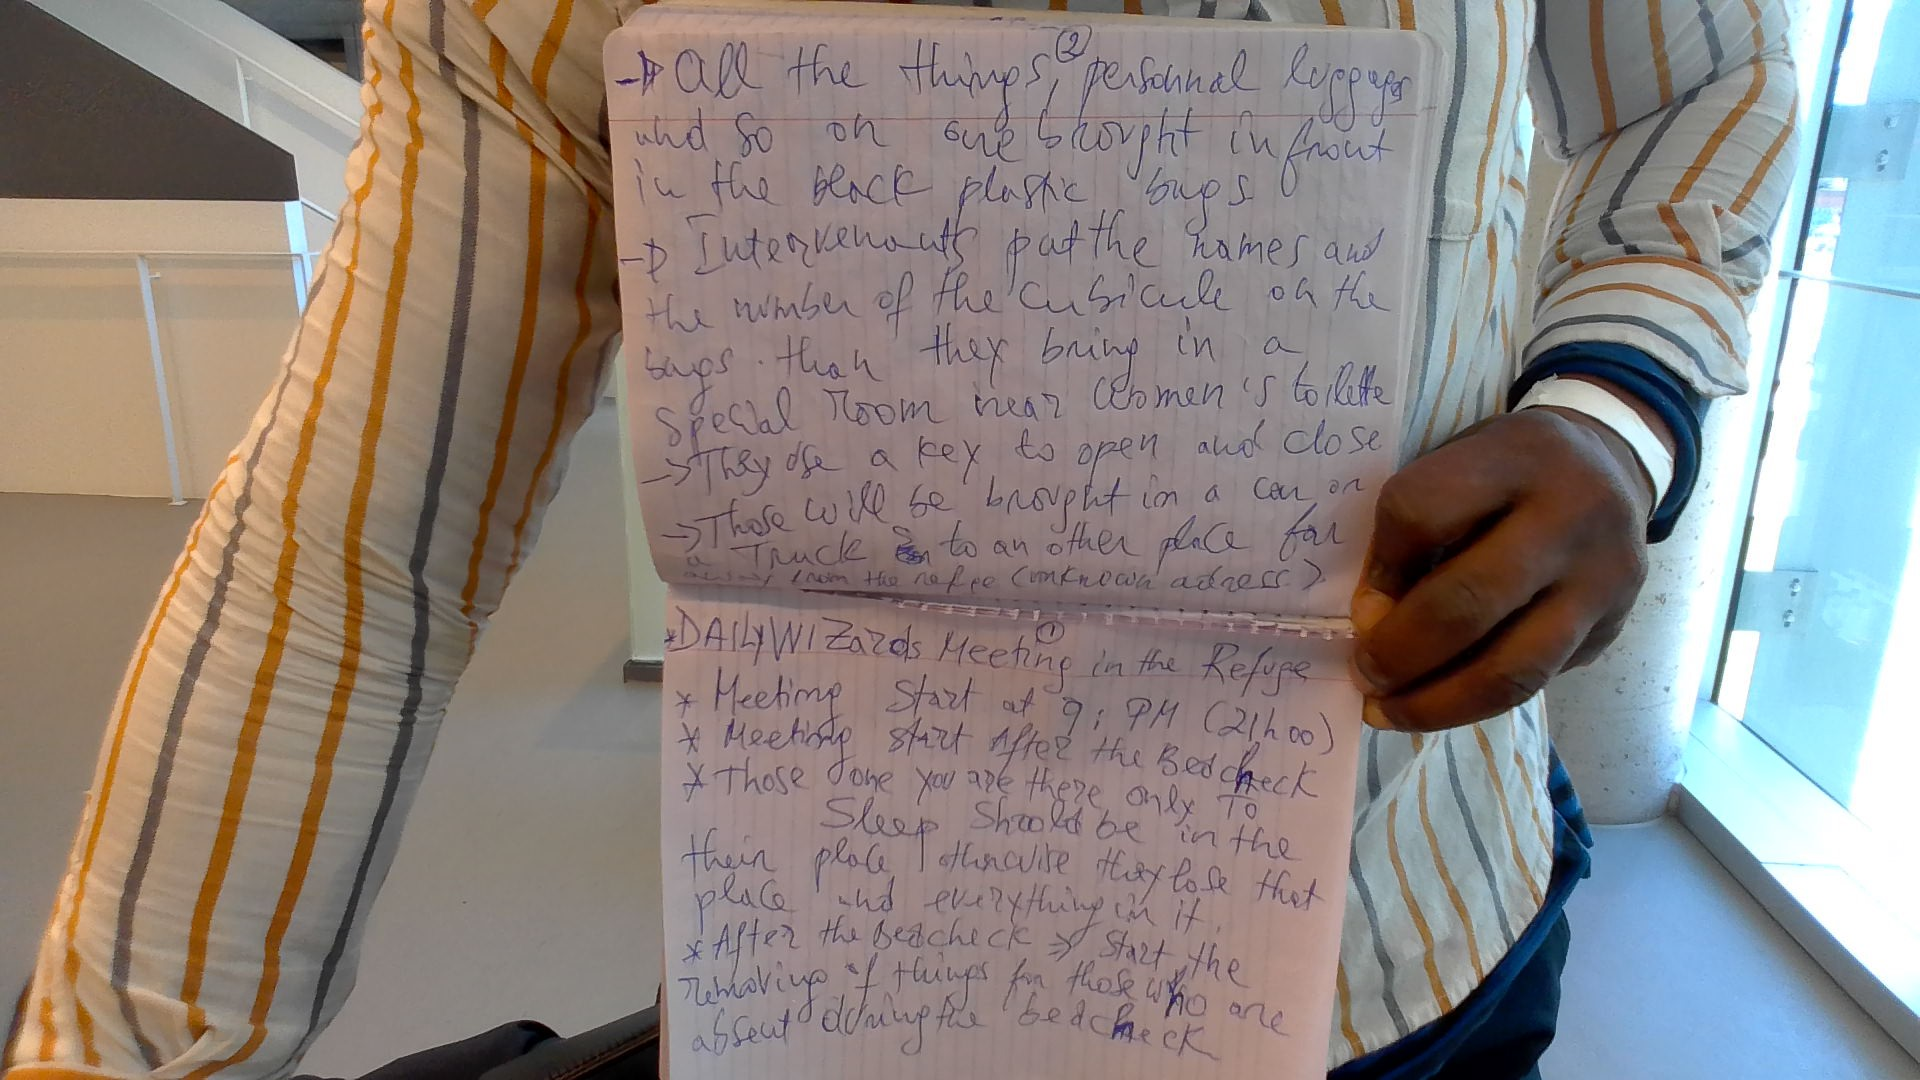 ②
→ All the things, personnal luggages
and so on are brought in front
in the black plastic bags
→ Intervenants put the names and
the number of the cubicule on the
bags. than they bring in a
special room near women's toilette
→ They use a key to open and close
→ Those will be brought in a car or
a Truck to an other place far
away from the refuge (unknown adress)
①
* DAILY WIZards Meeting in the Refuge
* Meeting Start at 9: PM (21h00)
* Meeting start After the Bedcheck
* Those one you are there only To
Sleep Should be in the
their place otherwise they lose that
place and everything in it.
* After the Bedcheck => Start the
removing of things for those who are
absent during the bedcheck